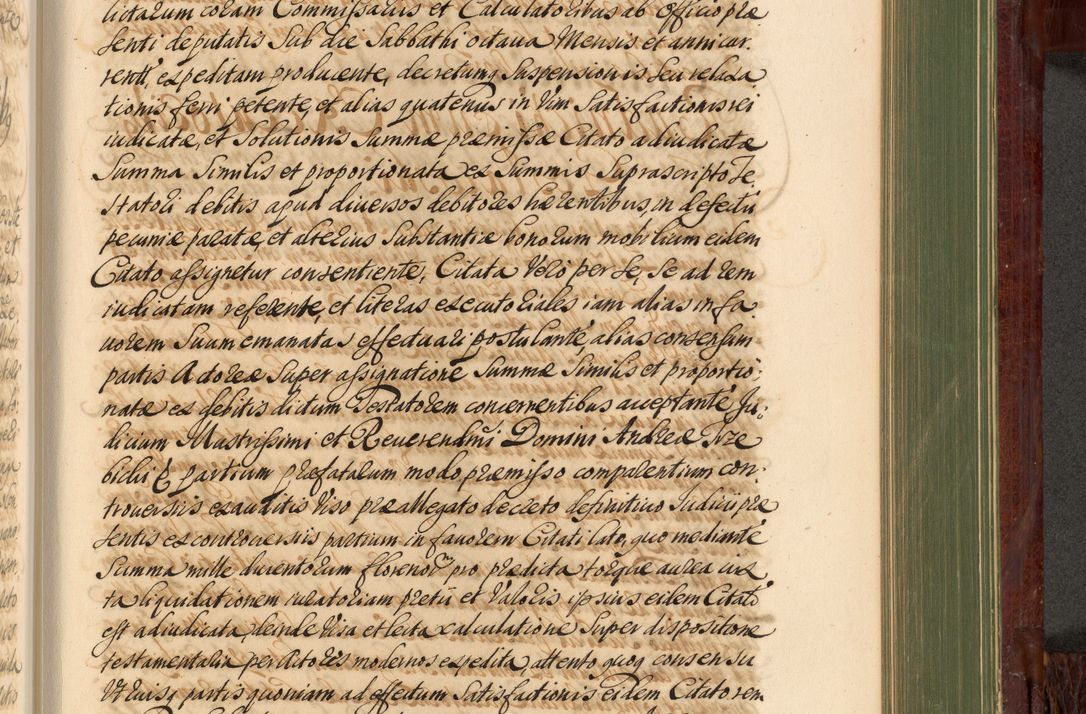 licitarum coram Commissariis et Calculatoribus ab Officio præ
senti deputatis Sub die Sabbathi octaua Mensis et anni cur
rentt, expeditam producente, decretumq Suspensionis seu relaxa
tionis ferri petente, et alias quatenus in Vim Satisfactionis rei
iudicatæ, et Solutionis Summæ præmissæ Citato adiudicatæ
Summa Similis et proportionata ex Summis Suprascripto Te,
statori debitis apud diuersos debitores hærentibus, in defectu
pecuniæ paratæ, et alterius Substantiæ bonorum mobilium eidem
Citato assignetur consentiente, Citata Verò per se, Se ad rem
iudicatam referente, et literas executoriales iam alias in fa
uorem Suum emanatas effectuari postulante, alias consensum
partis Actoreæ Super assignatione Summæ Similis et proportio,
natæ ex debitis dictum Testatorem concernentibus acceptante Ju,
dicium Illustrissimi et Reuerendmi Domini Andreæ Trze
bicki Epi partium præfatarum modo præmisso comparentium con,
trouersiis exauditis Viso præallegato decreto definitiuo Judicii præ
sentis ex controuersiis partium in fauorem Citati lato, quo mediante
Summa mille ducentorum florenor pro prædicta torque aurea iux
ta liquidationem iuratoriam pretii et Valoris ipsius eidem Citato
est adiudicata, deinde Visa et lecta calculatione Super dispositione
testamentaria per Actores modernos expedita, attento quoq consensu
Vtriusq partis quoniam ad effectum Satisfactionis eidem Citato rem